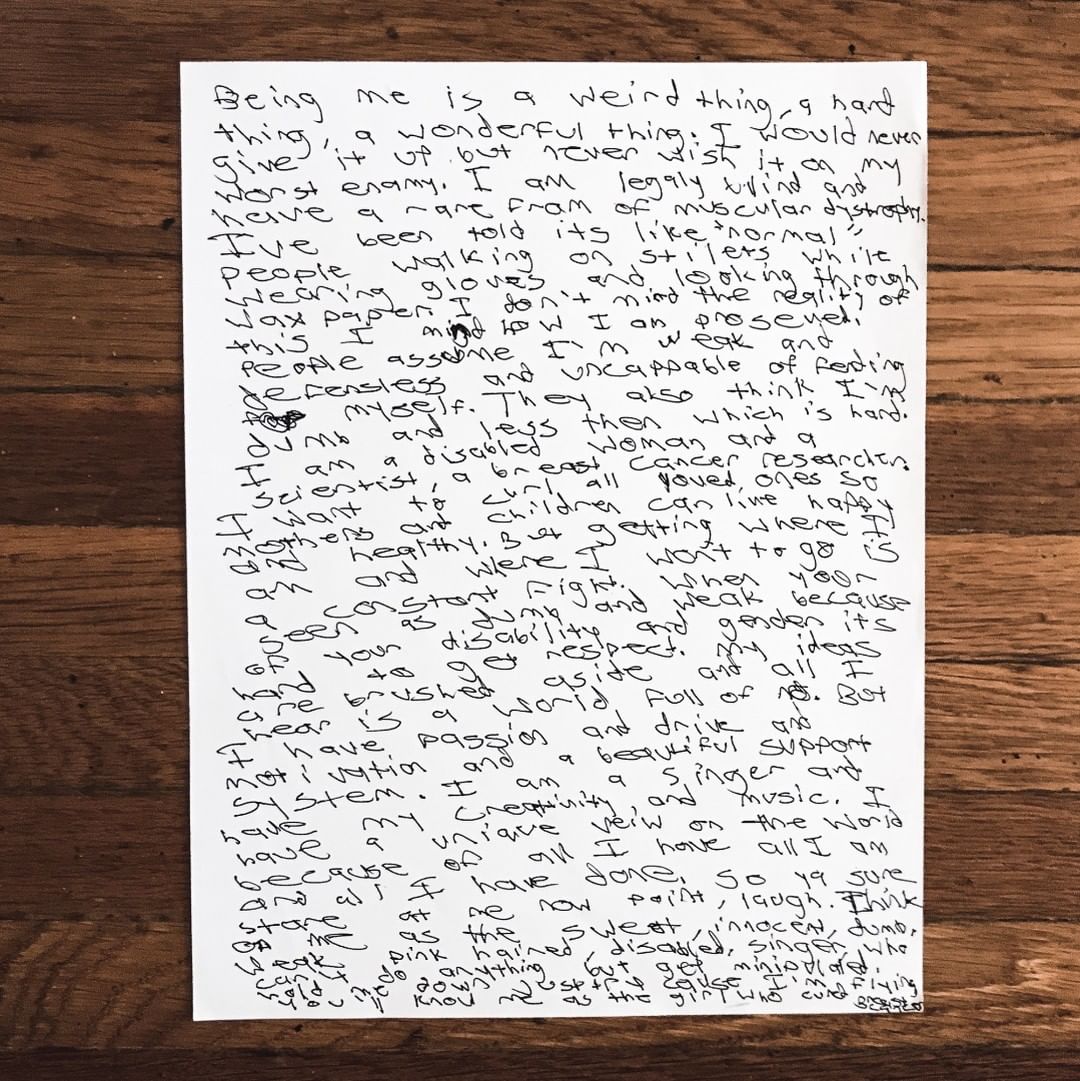 Being me is a weird thing, a hard
thing, a wonderful thing. I would never
give it up but never wish it on my
worst enamy. I am legaly blind and
have a rare fram of muscular dystrophy.
I've been told its like "normal"
people walking on stilets while
wearing gloves and looking through
wax paper. I don't mind the reality of
this I mind how I am proseved.
people assume I'm weak and
defensless and uncappable of feeding
myself. They also think I'm
which is hard.
I am a disabled woman and a
scientist a breast cancer researcher.
I want to cure all loved ones so
mothers and children can live happy
and healthy. But getting where I'm
and were I wont to go is
when your
dumb and weak because
you disability and gender its
to get respect. my ideas
pushed aside and all I
hear is a world full of no. But
I have passion and drive and
motivation and a beautiful support
system. I am a singer and
have creativity, and music. I
have a uniqve veiw on the world
because of all I have all I am
and all I have done. So ya sure
stare at me point, laugh. Think
of me as the sweet, innocent, dumb,
pink haired, disabled, singer, who
anything but get
know me as the girl who cured
Breast
Cancer